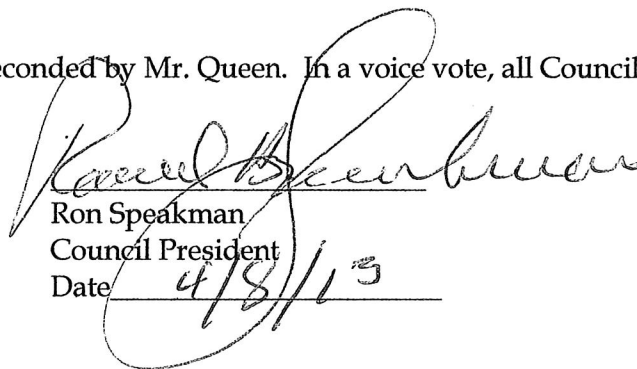 econded by Mr. Queen. In a voice vote, all Council
Ron Speakman
Council President
Date 4/8/13